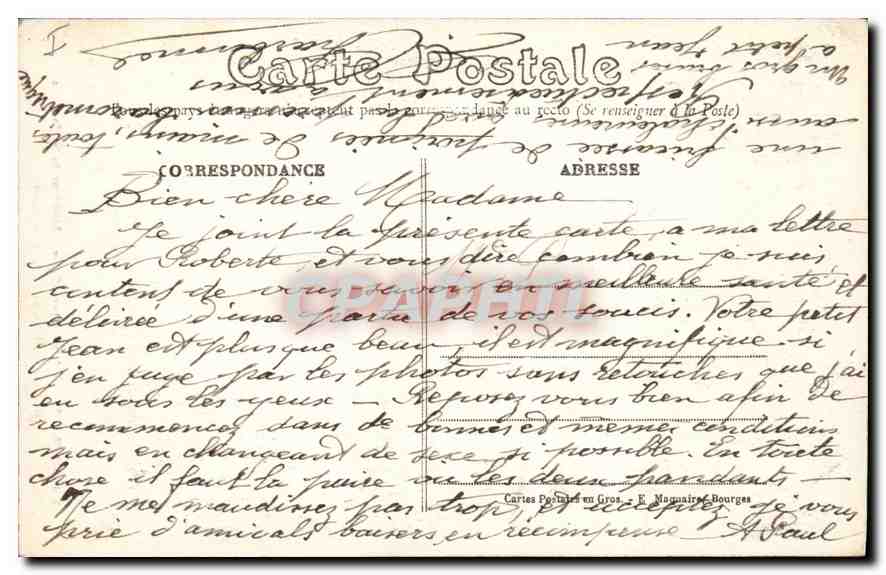 Carte Postale
Tous les pays étrangers n'acceptent pas la correspondance au recto (Se renseigner à la Poste)
CORRESPONDANCE
ADRESSE
Bien chère Madame
Je joint la présente carte, a ma lettre
pour Roberte, et vous dire combien je suis
content de vous savoir en meilleure santé et
délivrée d'une partie de vos soucis. Votre petit
Jean est plus que beau, il est magnifique si
j'en juge par les photos sans retouches que j'ai
en sous les yeux — Reposez vous bien afin de
recommencer dans de bonnes et memes conditions
mais en changeant de sexe si possible. En toute
chose il faut la paire ou les deux pendants —
Ne me maudissez pas trop, et acceptez je vous
prie d'amicals baisers en récompense A Paul
Cartes Postales en Gros. - E. Maquaire, Bourges
une puissance de poignées de mains, toute
aussi
Respectueusement
Un gros bisous
a petit Jean
I
CPAPHIL